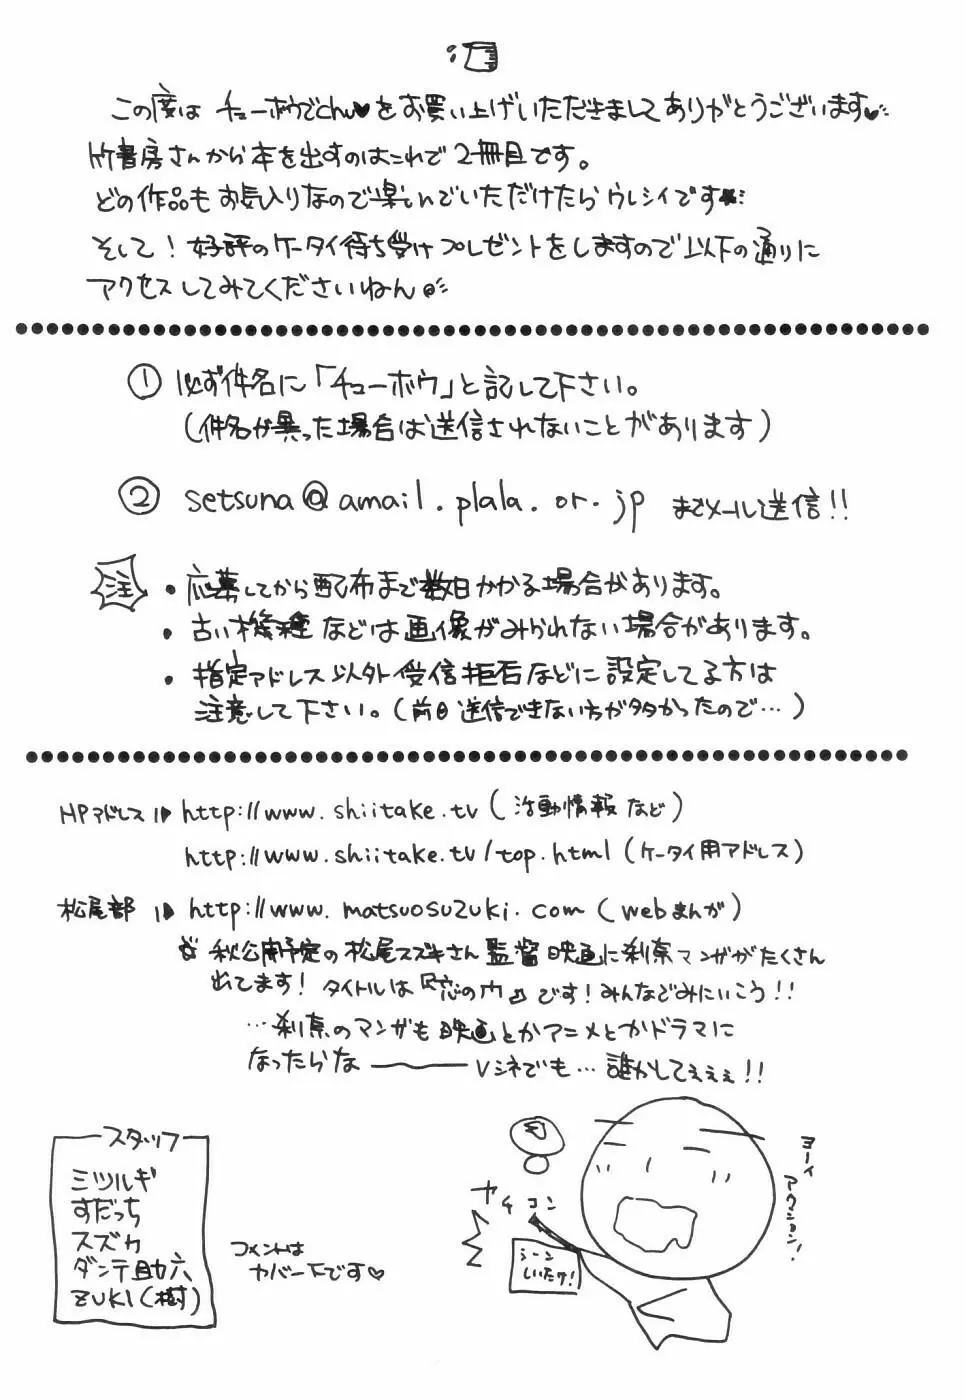 この度は チューボウでChu♥をお買い上げいただきましてありがとうございます♥
竹書房さんから本を出すのはこれで2冊目です。
どの作品もお気入りなので楽しんでいただけたらウレシイです★
そして!好評のケータイ待ち受けプレゼントをしますので以下の通りに
アクセスしてみてくださいねん
① 必ず件名に「チューボウ」と記して下さい。
(件名が異った場合は送信されないことがあります)
② setsuna@amail.plala.or.jp までメール送信!!
注
・応募してから配布まで数日かかる場合があります。
・古い機種などは画像がみられない場合があります。
・指定アドレス以外受信拒否などに設定してる方は
注意して下さい。(前回送信できない方が多かったので…)
HPアドレス http://www.shiitake.tv (活動情報など)
http://www.shiitake.tv/top.html (ケータイ用アドレス)
松尾部 http://www.matsuosuzuki.com (webまんが)
秋公開予定の松尾スズキさん監督映画に刹奈マンガがたくさん
出てます! タイトルは『恋の門』です!みんなでみにいこう!!
…刹奈のマンガも映画とかアニメとかドラマに
なったらな――― Vシネでも… 誰かしてぇぇぇ!!
スタッフ
ミツルギ
すだっち
スズカ
ダンテ助六
ZUKI(樹)
コメントは
カバー下です♥
カチコン
シーン
しいたけ!
ヨーイ
アクション!